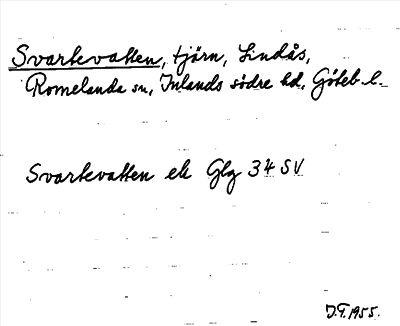 Svartevatten, tjärn, Lindås,
Romelanda sn, Inlands södre hd, Göteb. l.
Svartevatten ek Glg 34 SV
J.T. 1955.